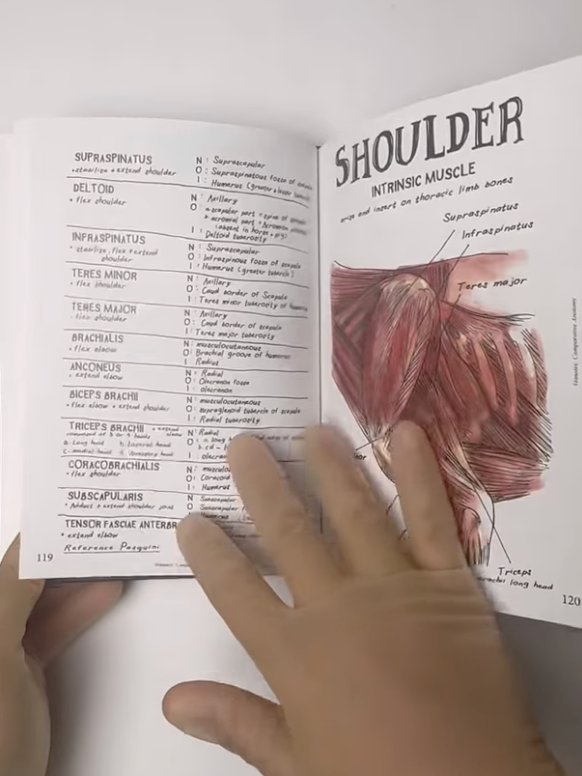 SUPRASPINATUS
• stabilize + extend shoulder
N : Suprascapular
O : Supraspinatous fossa of scapula
I : Humerus (greater + lesser
DELTOID
• flex shoulder
N : Axillary
O : a scapular part = spine of
b acromial part = Acromion
(absent in horse + pig)
I : Deltoid tuberosity
INFRASPINATUS
• stabilize, flex + extend
shoulder
N : Suprascapular
O : Infraspinous fossa of scapula
I : Humerus (greater tubercle)
TERES MINOR
• flex shoulder
N : Axillary
O : Caud border of Scapula
I : Teres minor tuberosity of humerus
TERES MAJOR
• flex shoulder
N : Axillary
O : Caud border of scapula
I : Teres major tuberosity
BRACHIALIS
• flex elbow
N : musculocutaneous
O : Brachial groove of humerus
I : Radius
ANCONEUS
• extend elbow
N : Radial
O : Olecranon fossa
I : olecranon
BICEPS BRACHII
• flex elbow + extend shoulder
N : musculocutaneous
O : supraglenoid tubercle of scapula
I : Radial tuberosity
TRICEPS BRACHII • extend elbow
composed of 3 or 4 heads
a. Long head b. lateral head
c. medial head d. Accessory head
N : Radial
O : a long
b c d =
I olecranon
CORACOBRACHIALIS
• flex shoulder
N :
O : Coracoid
I : Humerus
SUBSCAPULARIS
• Adduct + extend shoulder joint
N
O
I Humerus
TENSOR FASCIAE ANTEBR
• extend elbow
Reference Pasquini
119
SHOULDER
INTRINSIC MUSCLE
arise and insert on thoracic limb bones
Supraspinatus
Infraspinatus
Teres major
Triceps
brachii long head
Comparative Anatomy
120